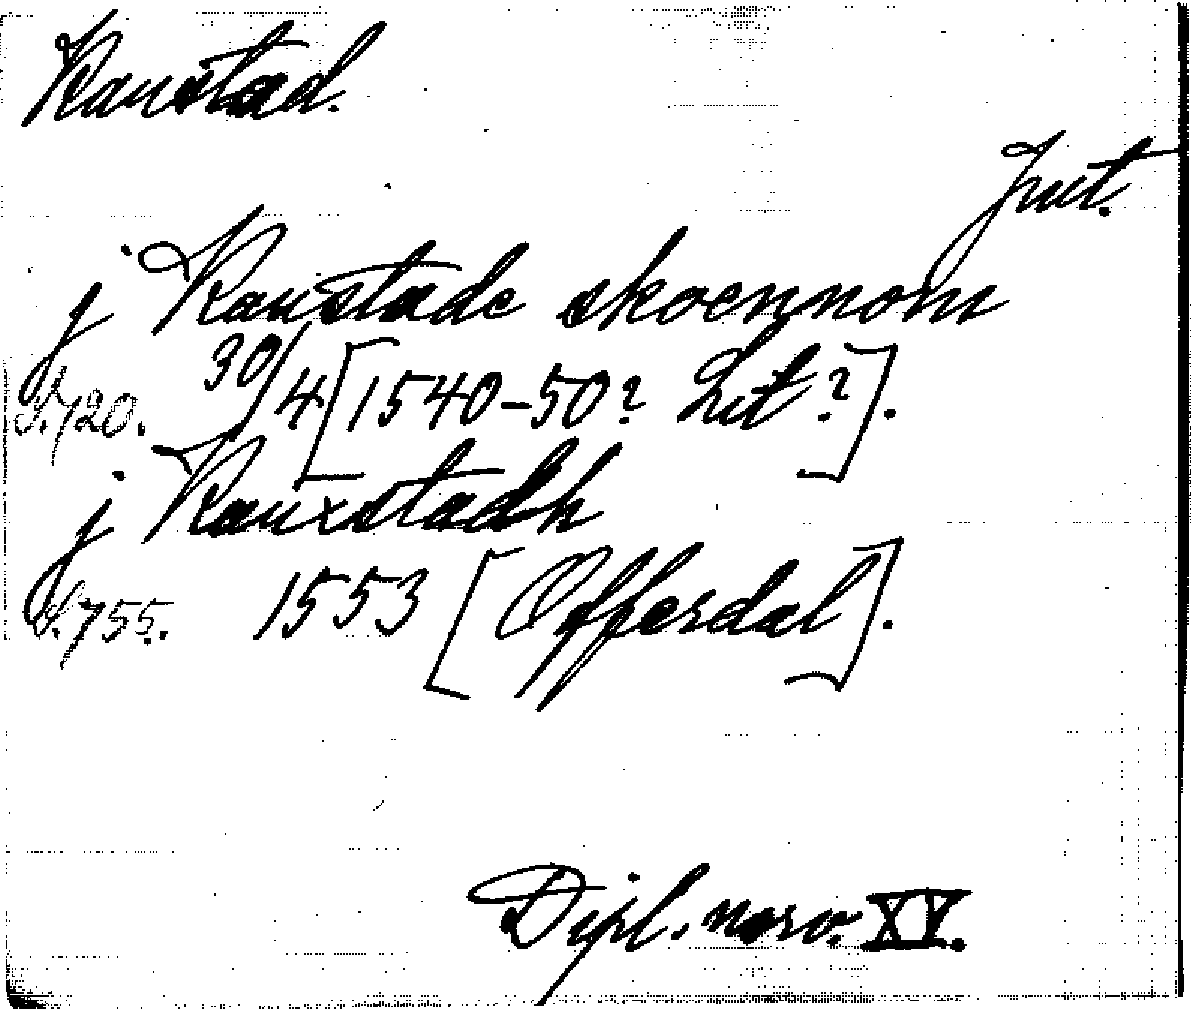 Kaustad.
Jmt.
j Kaustade skoennom
S.720. 30/4 [1540-50? Lit?].
j Kauxstadh
S.755. 1553 [Offerdal].
Dipl. norv. XV.